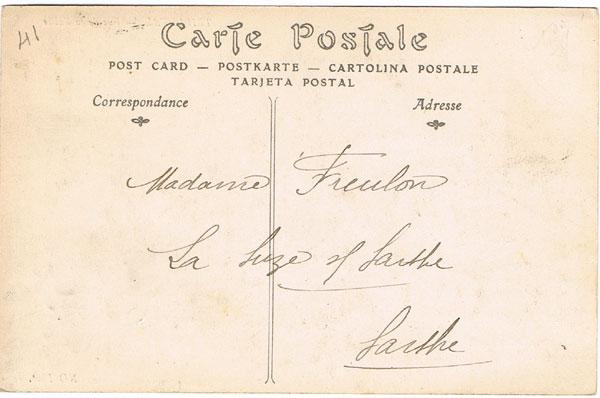 41
Carte Postale
POST CARD — POSTKARTE — CARTOLINA POSTALE
TARJETA POSTAL
Correspondance
Adresse
Madame Freulon
La Suze s/ Sarthe
Sarthe